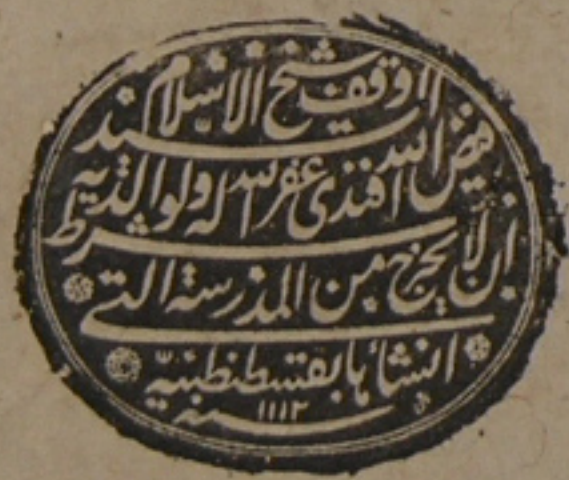 اوقف شيخ الاسلام السيد
فيض الله افندى غفر الله له ولوالديه
بشرط ان لا يخرج من المدرسة التى
انشأها بقسطنطنيّة
سنة ١١١٢